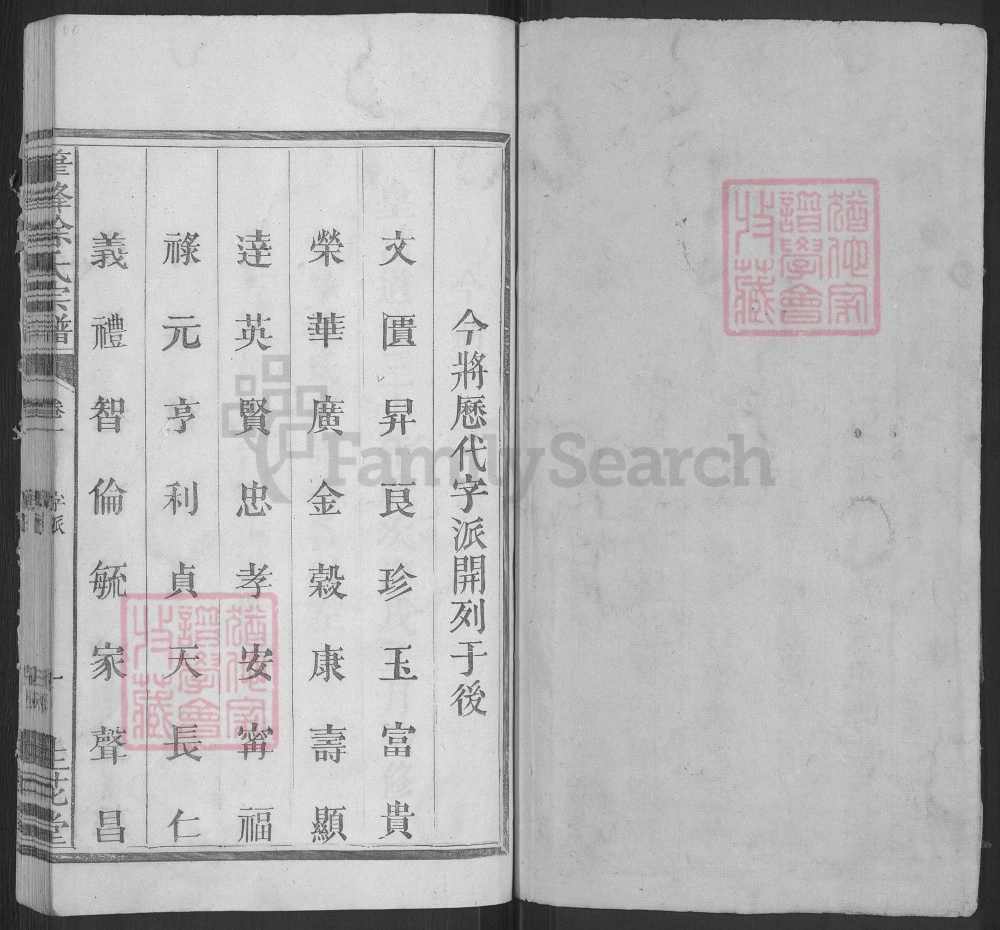 今將歷代字派開列于後
文匱昇良珍玉富貴
榮華廣金穀康壽顯
達英賢忠孝安甯福
祿元亨利貞天長仁
義禮智倫毓家聲昌
筆峰徐氏宗譜
卷一
字派
一
猶他家譜學會收藏
猶他家譜學會收藏
FamilySearch